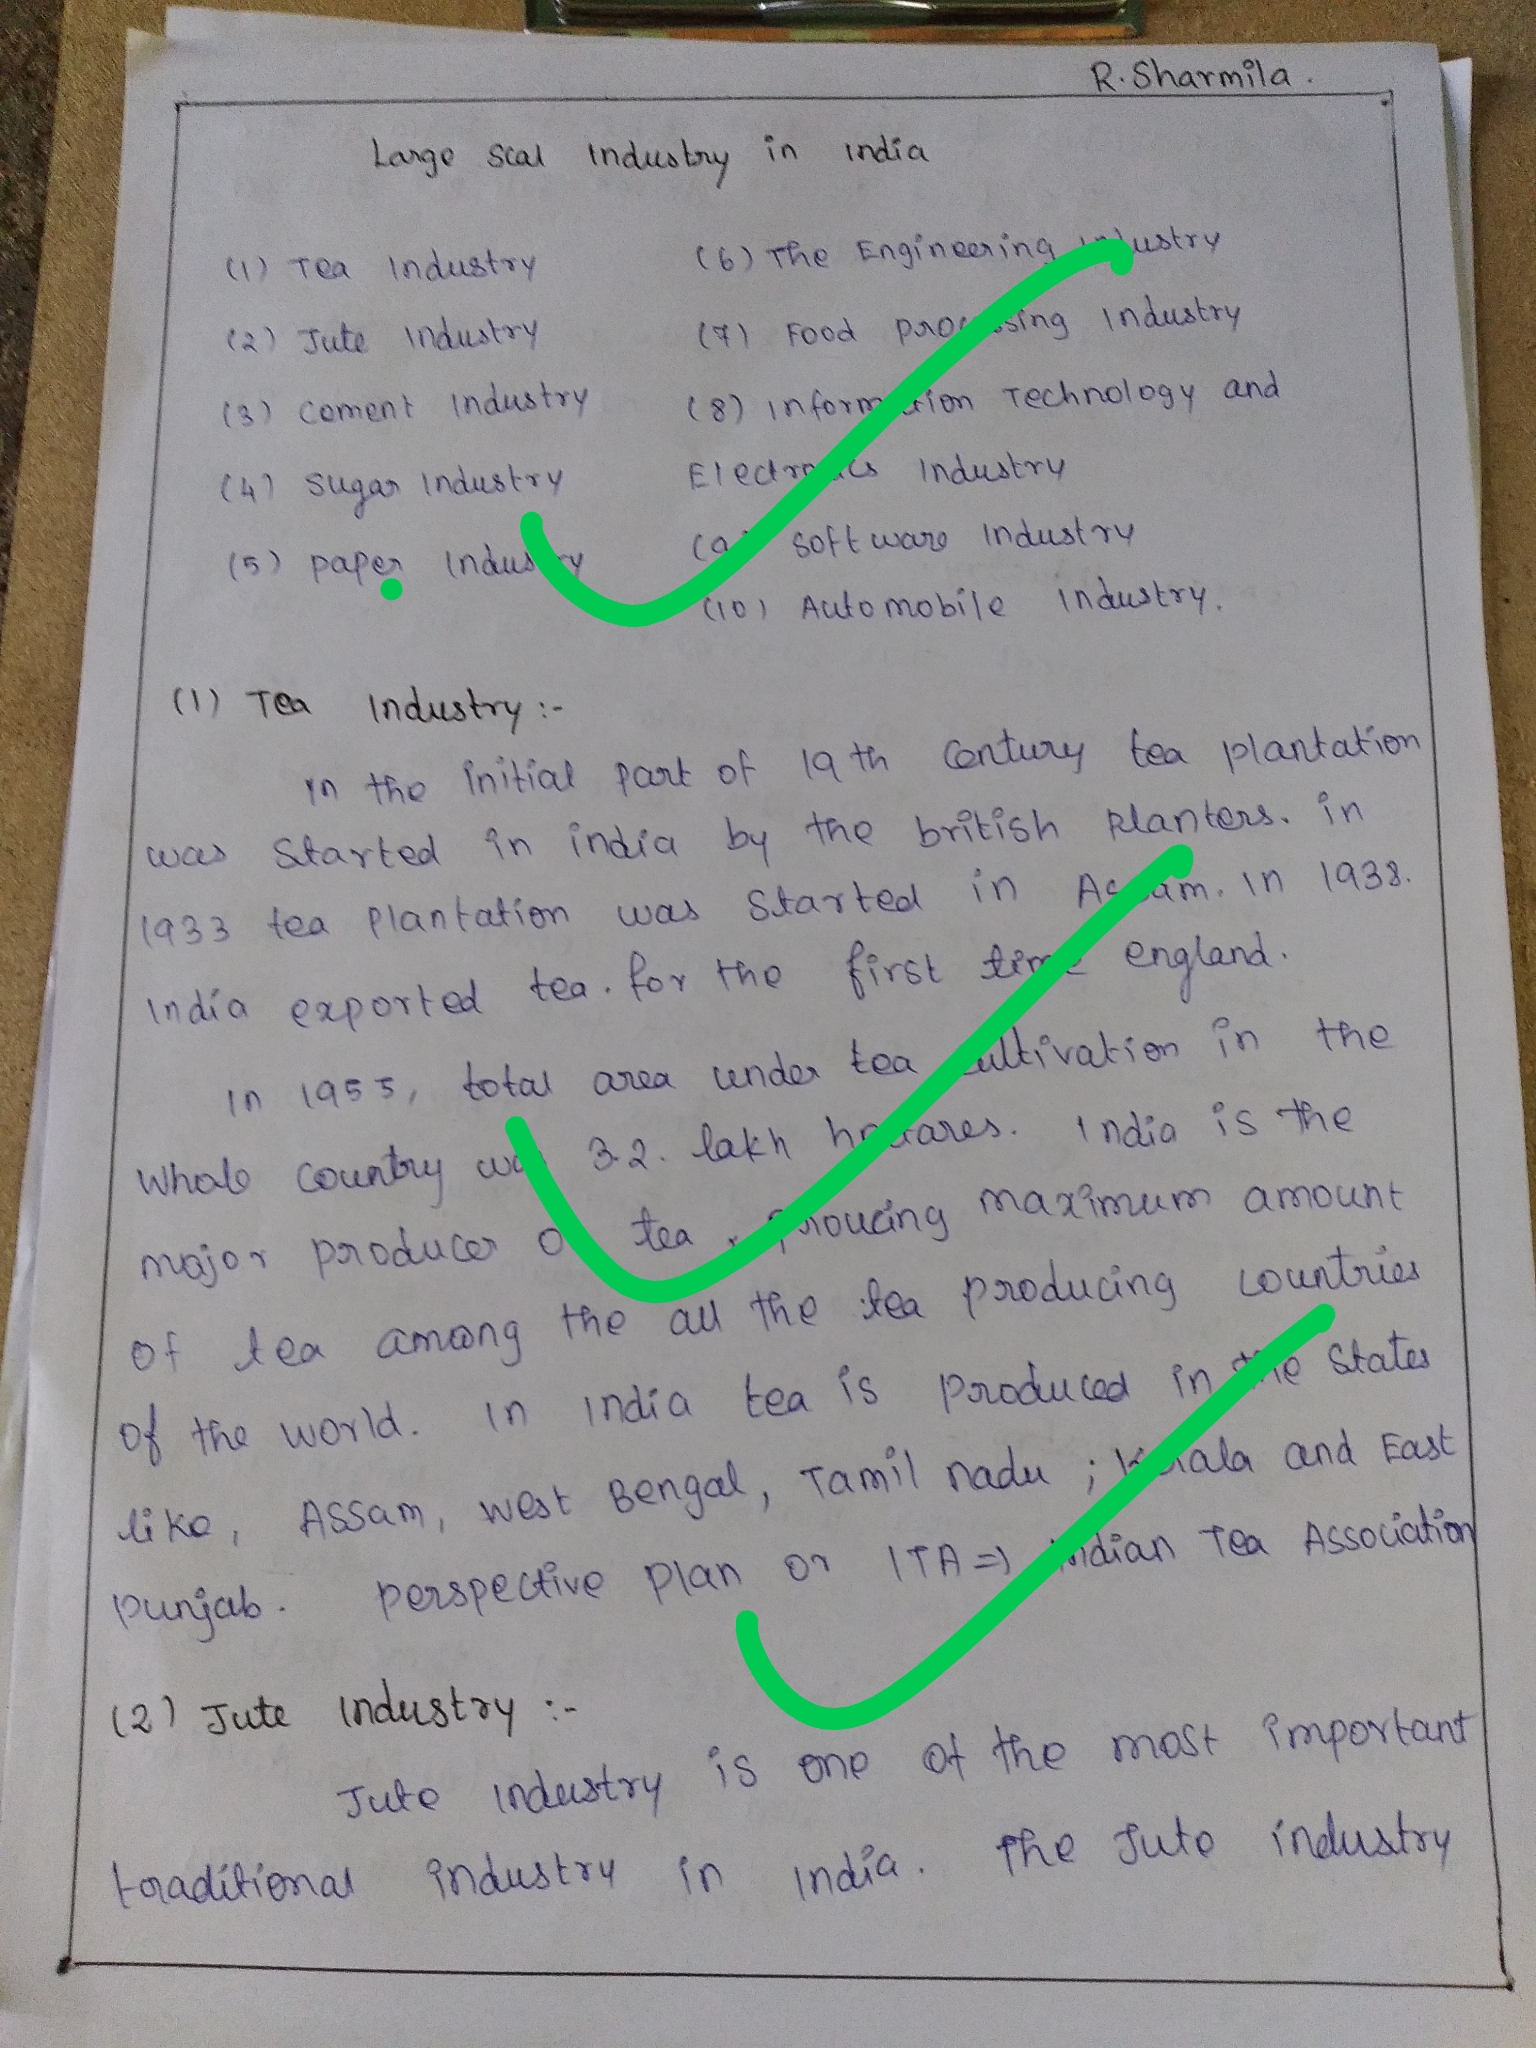 R. Sharmila.
Large Scal Industry in India
(1) Tea Industry
(2) Jute Industry
(3) Cement Industry
(4) Sugar Industry
(5) paper Industry
(6) The Engineering Industry
(7) Food processing Industry
(8) Information Technology and
Electronics Industry
(9) Software Industry
(10) Automobile industry.
(1) Tea Industry :-
In the initial part of 19th Century tea plantation
was Started in india by the british planters. in
1933 tea plantation was Started in Assam. In 1938.
India exported tea. for the first time england.
In 1955, total area under tea cultivation in the
whole Country was 3.2. lakh hectares. India is the
major producer of tea, proucing maximum amount
of tea among the all the tea producing countries
of the world. In India tea is produced in the States
like, Assam, west Bengal, Tamil nadu ; Kerala and East
punjab. perspective plan or ITA => Indian Tea Association
(2) Jute Industry :-
Jute industry is one of the most important
traditional industry in india. The Jute industry